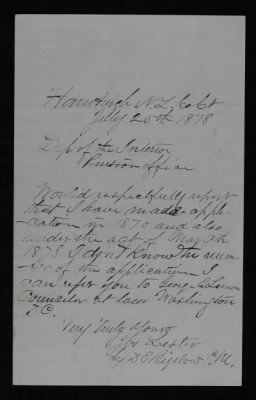 July 25th 1878
Dep of the Interior
Pension Office
Would respectfully report
that I have made appli-
cation in 1870 and also
under the act of March 9th
1878 I don't know the num-
ber of the application I
can refer you to Geo
Counselor at law Washington
D.C.
Very Truly Yours
Lester
by D E Bigelow P.M.